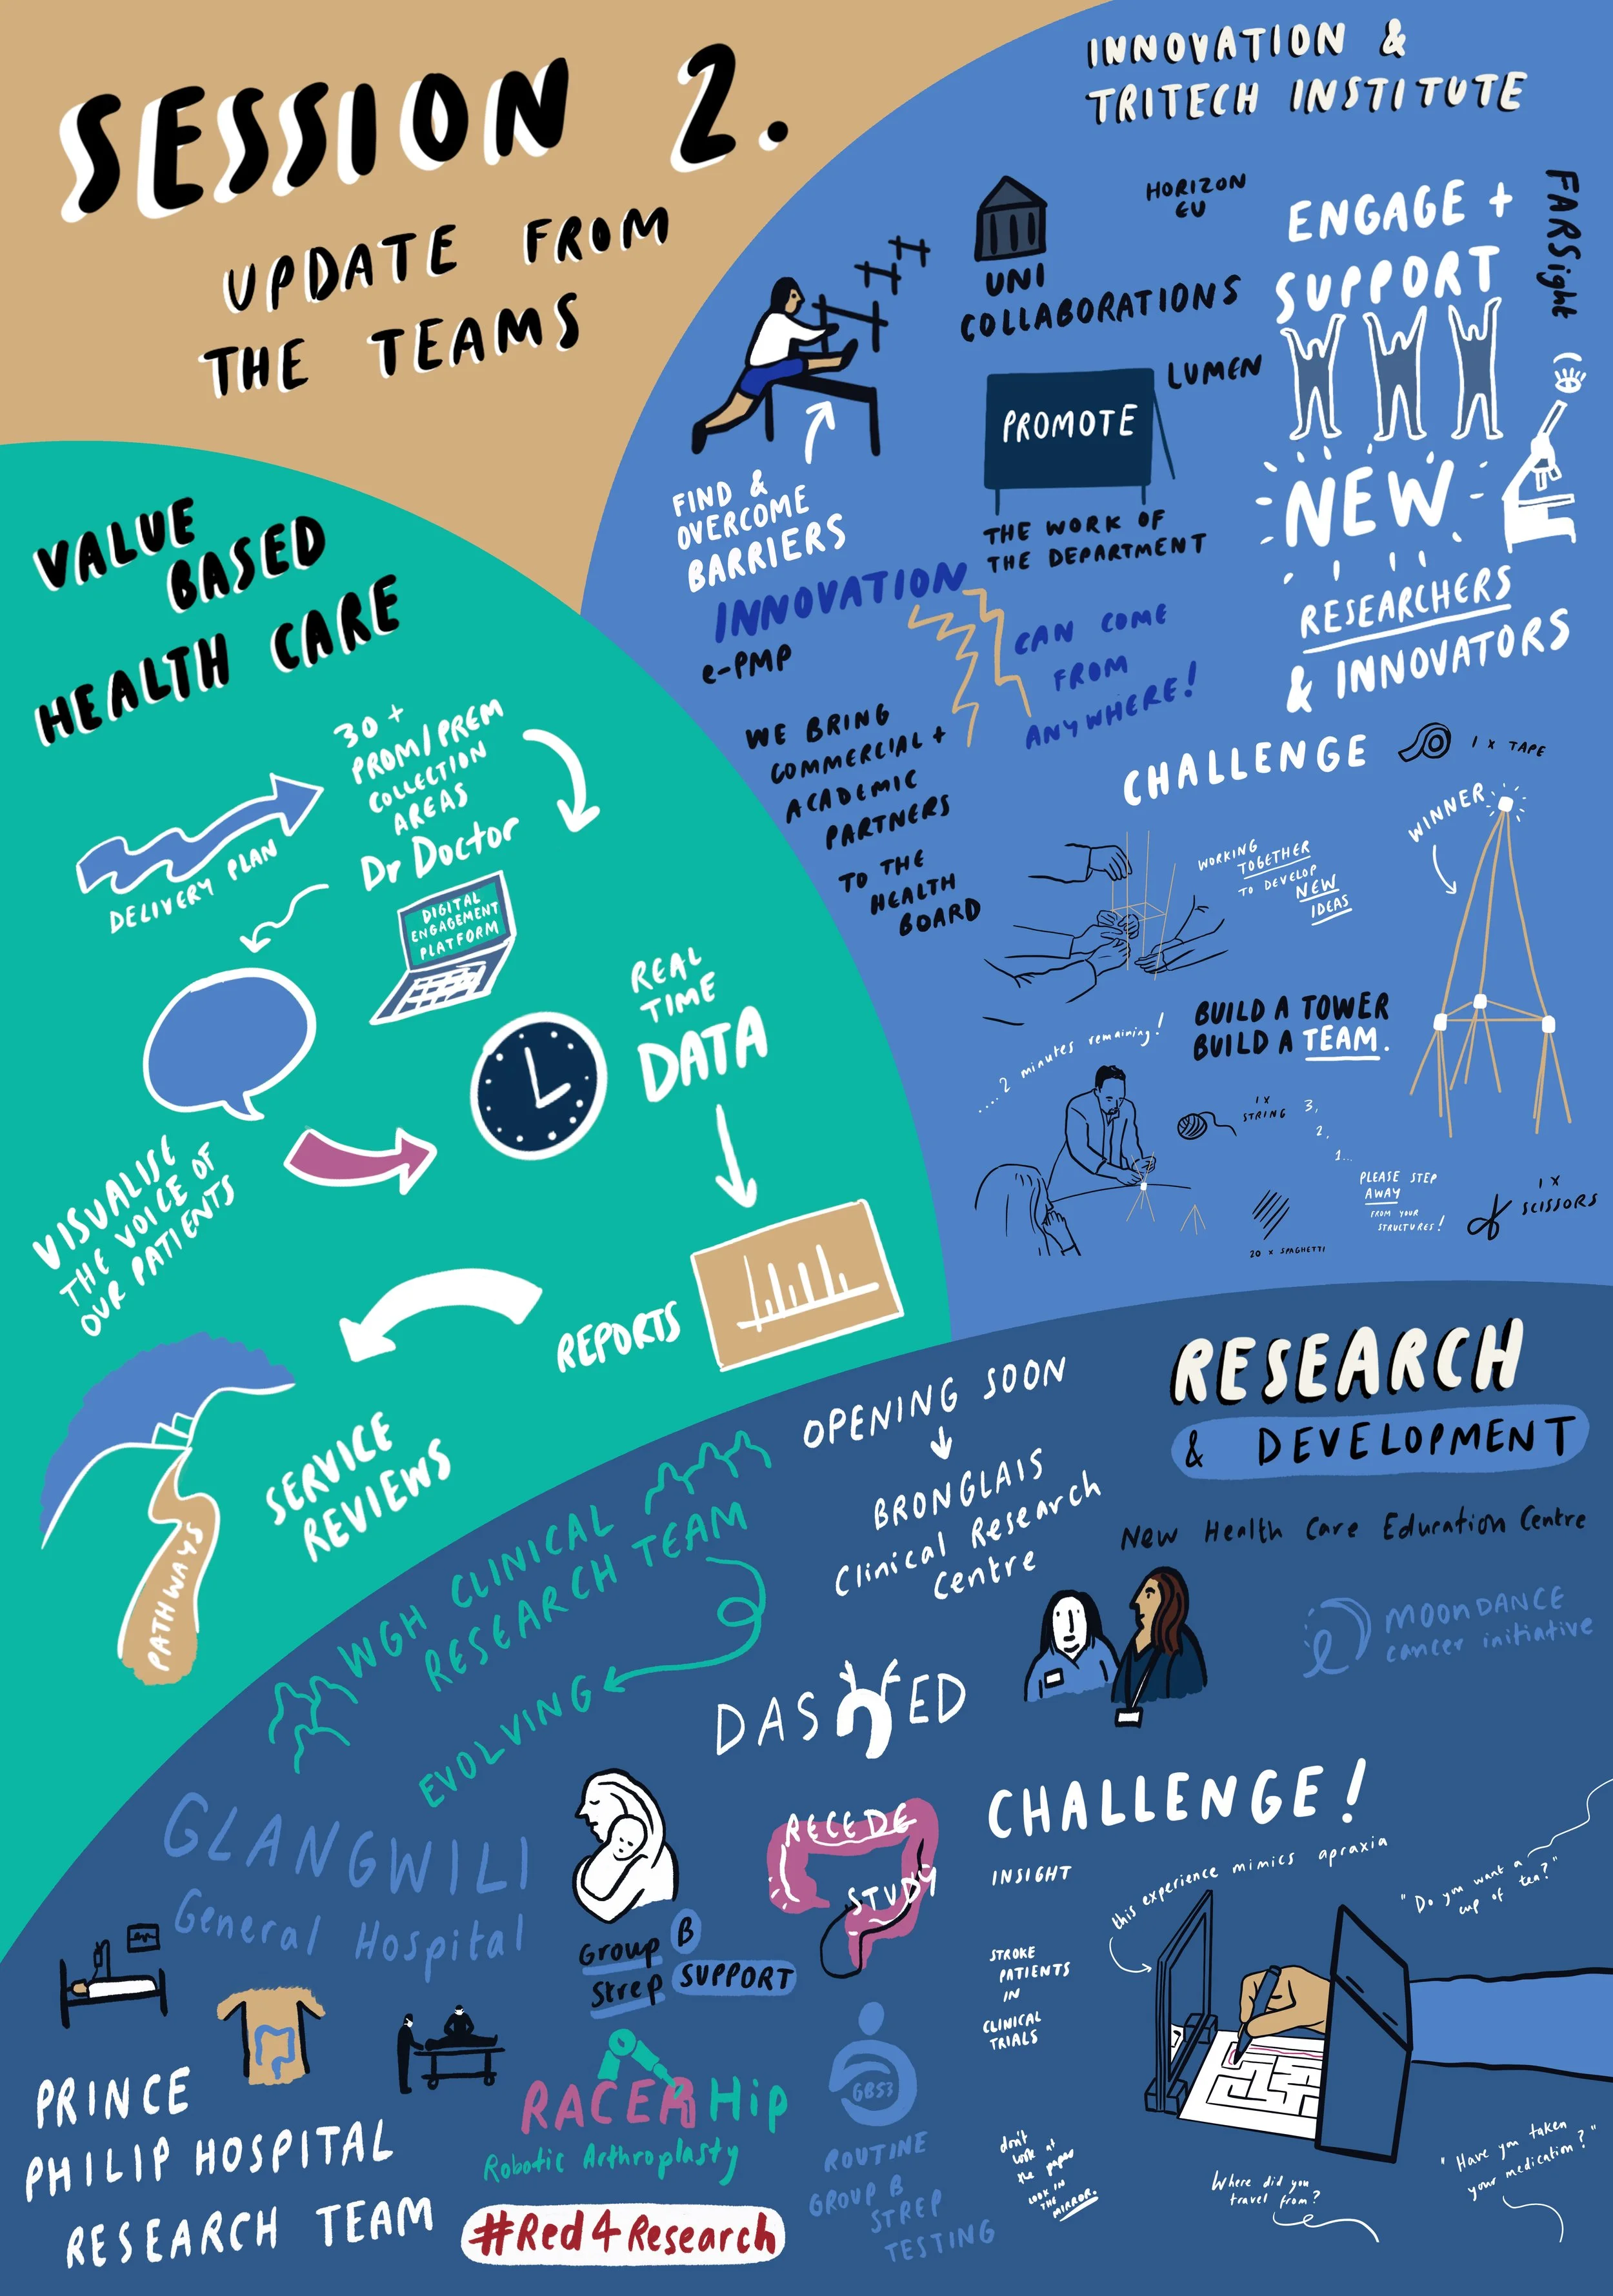 SESSION 2.
UPDATE FROM
THE TEAMS
VALUE
BASED
HEALTH CARE
30 +
PROM/PREM
COLLECTION
AREAS
Dr Doctor
DELIVERY PLAN
DIGITAL
ENGAGEMENT
PLATFORM
REAL
TIME
DATA
VISUALISE
THE VOICE OF
OUR PATIENTS
REPORTS
SERVICE
REVIEWS
PATHWAYS
INNOVATION &
TRITECH INSTITUTE
HORIZON
EU
UNI
COLLABORATIONS
LUMEN
ENGAGE +
SUPPORT
FARSight
NEW
RESEARCHERS
& INNOVATORS
PROMOTE
THE WORK OF
THE DEPARTMENT
FIND &
OVERCOME
BARRIERS
INNOVATION
CAN COME
FROM
ANYWHERE!
e-PMP
WE BRING
COMMERCIAL +
ACADEMIC
PARTNERS
TO THE
HEALTH
BOARD
CHALLENGE
1 x TAPE
WINNER
WORKING
TOGETHER
TO DEVELOP
NEW
IDEAS
BUILD A TOWER
BUILD A TEAM.
..... 2 minutes remaining!
1 x
STRING
3,
2,
1...
PLEASE STEP
AWAY
FROM YOUR
STRUCTURES!
1 x
SCISSORS
20 x SPAGHETTI
RESEARCH
& DEVELOPMENT
OPENING SOON
BRONGLAIS
Clinical Research
Centre
New Health Care Education Centre
MOONDANCE
cancer initiative
WGH CLINICAL
RESEARCH TEAM
EVOLVING
DASHED
GLANGWILI
General Hospital
Group B
Strep SUPPORT
RECEDE
STUDY
PRINCE
PHILIP HOSPITAL
RESEARCH TEAM
RACER Hip
Robotic Arthroplasty
#Red4Research
GBS3
ROUTINE
GROUP B
STREP
TESTING
CHALLENGE!
INSIGHT
this experience mimics apraxia
STROKE
PATIENTS
IN
CLINICAL
TRIALS
"Do you want a
cup of tea?"
don't
look at
the paper
LOOK IN
THE
MIRROR.
Where did you
travel from?
"Have you taken
your medication?"